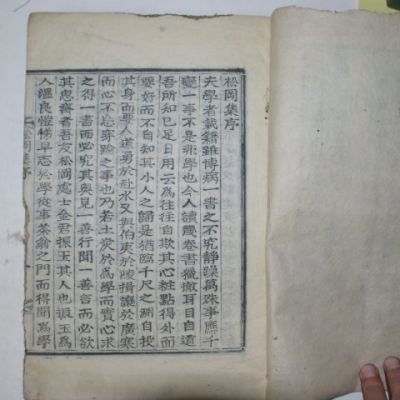 松岡集序
夫學者載籍雖博病一書之不究靜躁爲殊事應千
變一事不是非學也今人讀幾卷書獵撤耳目自遠
吾所知已足日用云爲往往自欺其心粧點得外面
要好而不自知其小人之歸是猶臨千尺之淵自投
其身而要人道勇於赴水又與伯東於陵揖讓於廣寒
而心不忘穿踰之事也乃若士庶於爲學而實心求
之得一書而必究其奧見一善行聞一善言而必欲
其思齊者吾友松岡處士金君振玉其人也振玉爲
人溫良愷悌早志於學從事茶翁之門而得聞爲學
松岡集序